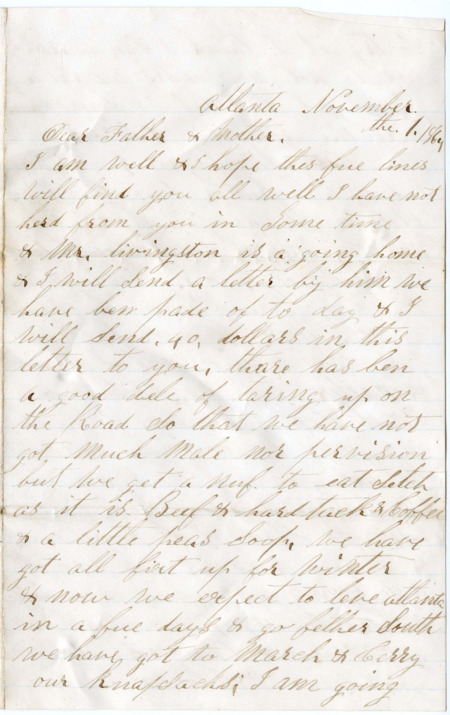 Atlanta November
the. 1. 1864
Dear Father & Mother.
I am well & I hope thes fue lines
will find you all well I have not
herd from you in Some time
& Mr. livingston is a going home
& I will Send a letter by him we
have ben pade of to day & I
will Send. 40, dollars in this
letter to you, thare has ben
a good dele of taring up on
the Road So that we have not
got much Male nor pervision
but we get a nuf to eat Sitch
as it is Beef & hardtack & Coffee
& a little peas Soop, we have
got all fixt up for winter
& now we expect to leve atlanta
in a fue days & go father South
we have got to March & Carry
our knapsacks; I am going